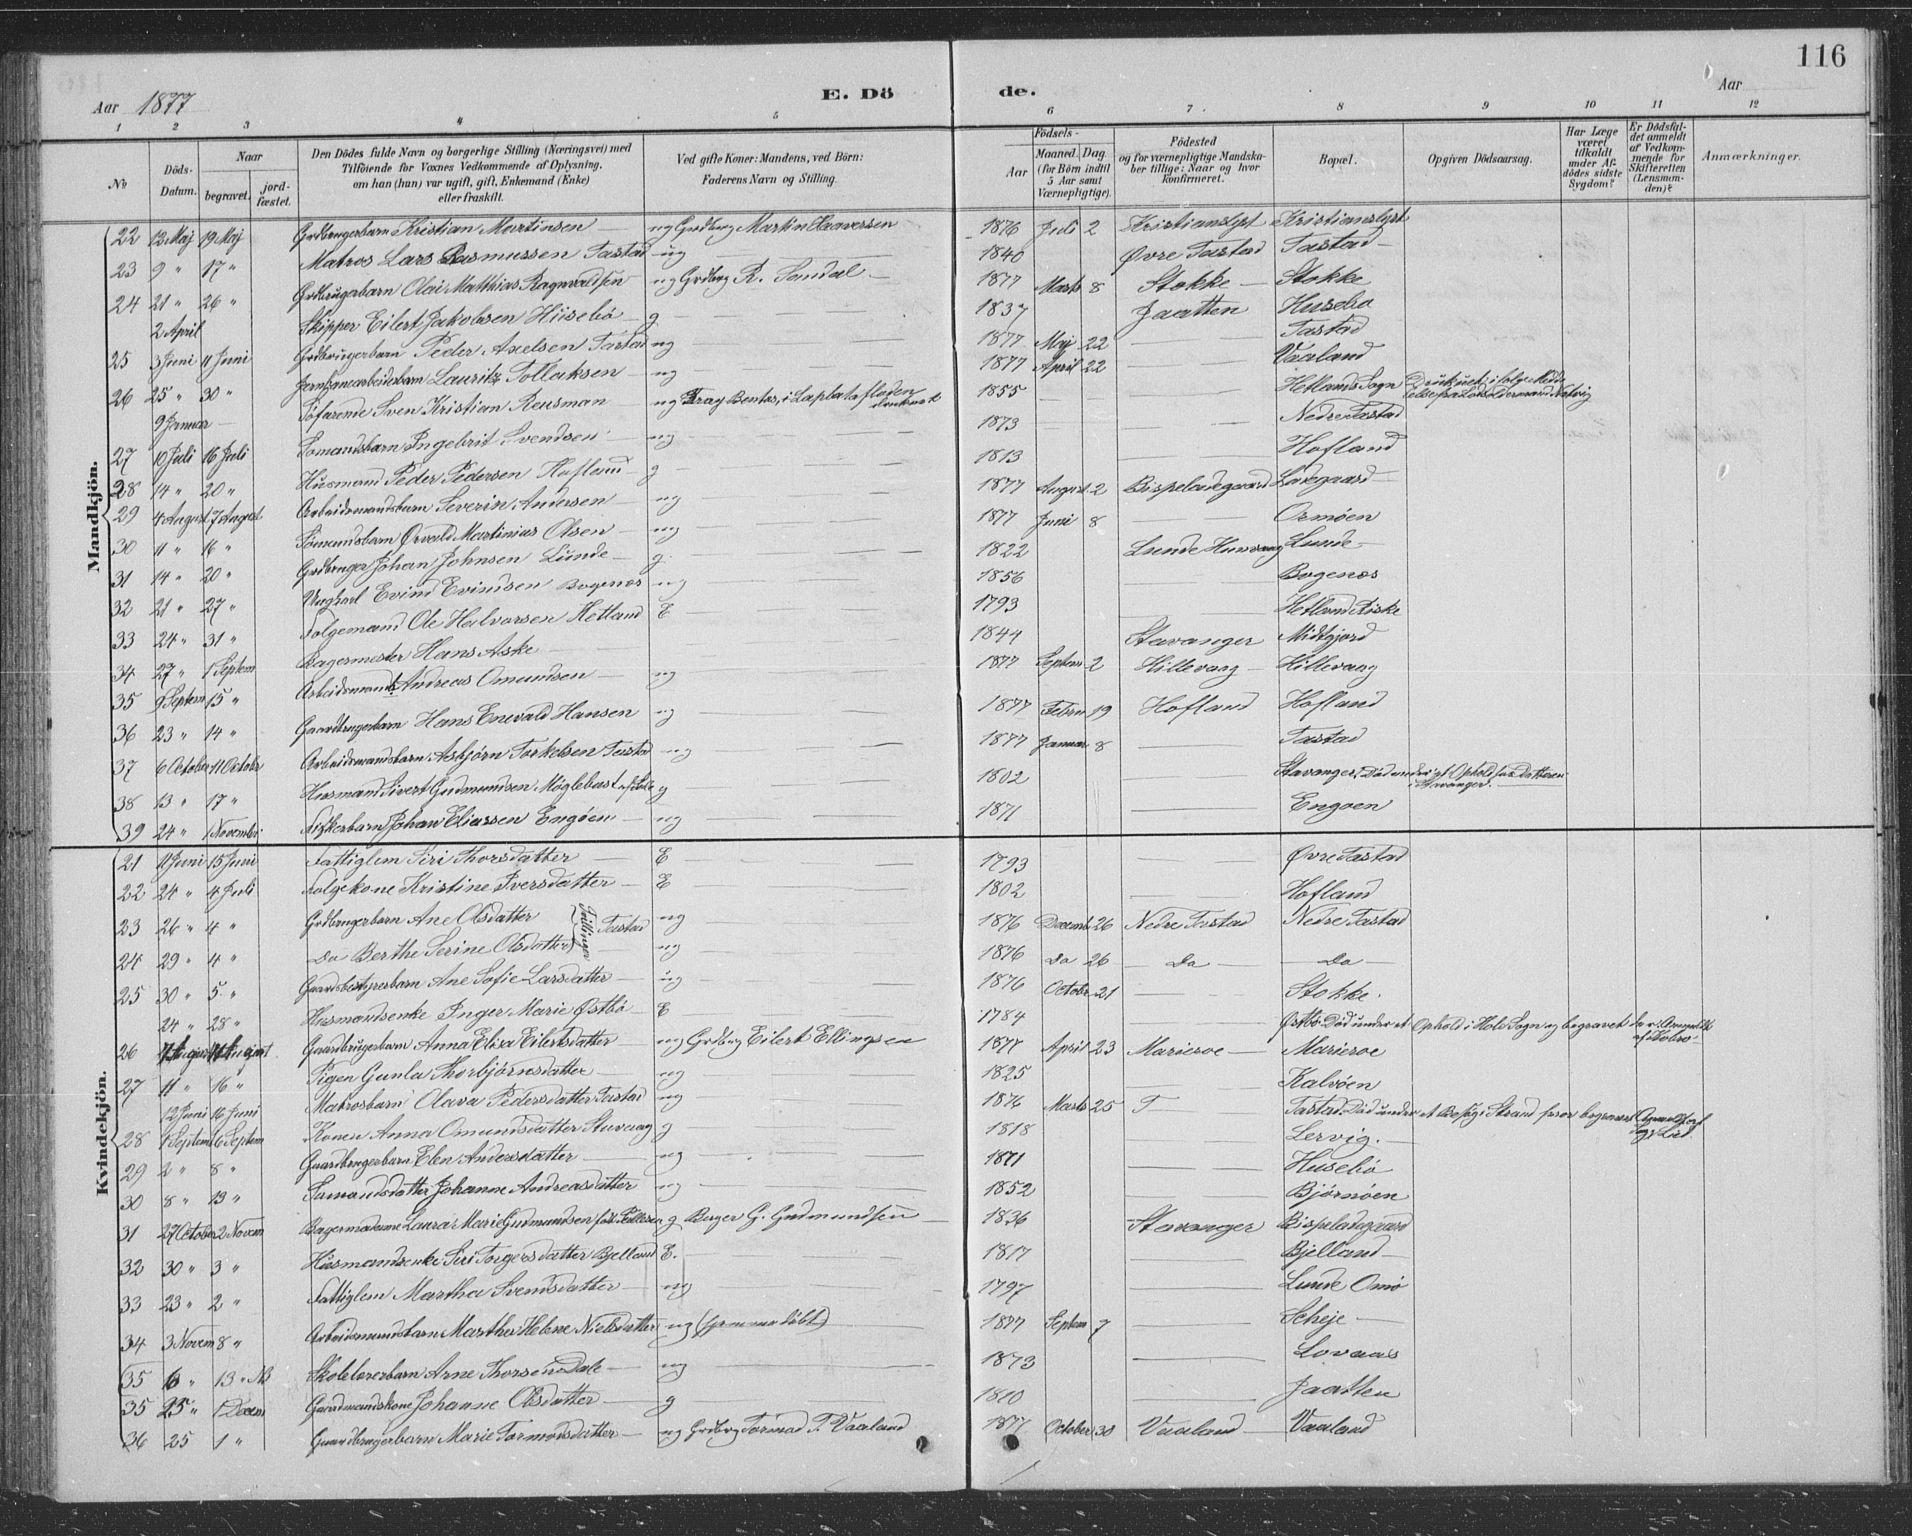 116
Aar 1877 E. Dö de. Aar
1 2 3 4 5 6 7 8 9 10 11 12
No Döds-Datum. Naar begravet. jord-fæstet. Den Dödes fulde Navn og borgerlige Stilling (Næringsvei) med Tilföiende for Voxnes Vedkommende af Oplysning, om han (hun) var ugift, gift, Enkemand (Enke) eller fraskilt. Ved gifte Koner: Mandens, ved Börn: Faderens Navn og Stilling. Födsels- Aar Maaned. Dag (for Börn indtil 5 Aar samt Værnepligtige). Födested og for værnepligtige Mandska-ber tillige: Naar og hvor konfirmeret. Bopæl. Opgiven Dödsaarsag. Har Læge været tilkaldt under Af-dödes sidste Sygdom? Er Dödsfal-det anmeldt af Vedkom-mende for Skifteretten (Lensman-den)? Anmærkninger.
Mandkjön.
22 12 Maj 19 Maj Grdbrugerbarn Kristian Martinsen ug Grdbrg Martin Haaversen 1876 Juli 2 Kristianslyst Kristianslyst
23 9 " 17 " Matros Lars Rasmussen Tastad ug 1840 Øvre Tastad Tastad
24 21 " 26 " Grdbrugerbarn Olai Matthias Ragnvaldsen ug Grdbrg R. Sandal 1877 Marts 8 Stokke Stokke
2 April Skipper Eilert Jakobsen Husebö g 1837 Jaatten Husebö
25 3 Juni 11 Juni Grdbrugerbarn Peder Axelsen Tastad ug 1877 Maj 22 Tastad
26 25 " 30 " Lauritz Tollaksen ug 1877 April 22 Vaaland
9 Januar Söfarende Sven Kristian Reusman ug Fray Bentos, i Laplatafloden druknet 1855 Hetlands Sogn Druknet ifolge Medd
27 10 Juli 16 Juli Sömandsbarn Ingebrit Svendsen ug 1873 Nedre Tastad
28 14 " 20 " Husmand Peder Pedersen Hofland g 1813 Hofland
29 4 August 7 August Arbeidsmandsbarn Severin Andersen ug 1877 August 2 Bispeladegaard Ladegaard
30 11 " 16 " Sömandsbarn Orvald Martinius Olsen ug 1877 Juni 8 Ormöen
31 14 " 20 " Grdbruger Johan Johnsen Lunde g 1822 Lunde Hunvaag Lunde
32 21 " 27 " Ungkarl Evind Evindsen Bogenæs ug 1856 Bogenæs
33 24 " 31 " Folgemand Ole Halvorsen Hetland E 1793 Hetland Riske
34 27 " 1 Septem Bagermester Hans Aske 1844 Stavanger Midtgjord
35 9 Septem 15 " Arbeidsmands Andreas Omundsen ug 1877 Septem 2 Hillevaag Hillevaag
36 23 " 14 " Gaardbrugerbarn Hans Enevald Hansen ug 1877 Februar 19 Hofland Hofland
37 6 October 11 October Arbeidsmandsbarn Asbjørn Torkelsen Tastad ug 1877 Januar 8 Tastad
38 13 " 17 " Husmand Sivert Gudmundsen Möglebust g 1802 Stavanger, Död under et Ophold hos Datteren i Stavanger.
39 24 " 1 November Fiskerbarn Johan Eliassen Engöen ug 1871 Engöen
Kvindekjön.
21 11 Juni 15 Juni Fattiglem Siri Thorsdatter E 1793 Øvre Tastad
22 24 " 4 Juli Folgekone Kristine Iversdatter E 1802 Hofland
23 26 " 4 " Grdbrugerbarn Ane Olsdatter Tvillinger Tastad ug 1876 Decemb 26 Nedre Tastad Nedre Tastad
24 29 " 4 " Do Berthe Serine Olsdatter ug 1876 Do 26 Do Do
25 30 " 5 " Gaardsbestyrerbarn Ane Sofie Larsdatter ug 1876 October 21 Stokke.
24 " 28 " Husmandsenke Inger Marie Østbö E 1784 Østbö Död under et Ophold i Hole Sogn og begravet der.
26 August Gaardbrugerbarn Anna Elisa Eilertsdatter ug Grdbrg Eilert Ellingsen 1877 April 23 Marieroe Marieroe
27 11 " 16 " Pigen Gunla Thorbjörnsdatter ug 1825 Kalvöen
12 Juni 16 Juni Matrosbarn Olava Pedersdatter Tastad ug 1876 Marts 25 T Tastad Död under et Besög i Strand hvor begravet
28 1 Septem 6 Septem Konen Anna Omundsdatter Stuvaag g 1818 Lervig.
29 2 " 8 " Gaardbrugerbarn Elen Andersdatter ug 1871 Husebö
30 8 " 13 " Sömandsdatter Johanne Andreasdatter ug 1852 Björnöen
31 27 October 2 Novem Bagermadame Laura Marie Gudmundsen g Bager G. Gudmundsen 1836 Stavanger Bispeladegaard
32 30 " 3 " Husmandsenke Siri Torgersdatter Bjelland E. 1817 Bjelland
33 23 " 2 " Fattiglem Martha Svendsdatter ug 1797 Lunde Omö
34 3 Novem 8 " Arbeidsmandsbarn Marthe Helene Nielsdatter ug (hjemmedöbt) 1877 Septem 7 Scheje
35 13 " NB Skolelærerbarn Arne Thorsen Dale ug 1873 Lovaas
35 25 " 1 Decem Gaardmandskone Johanne Olsdatter g 1810 Jaatten
36 25 1 " Gaardbrugerbarn Marie Tormodsdatter ug Grdbrg Tormod T. Vaaland 1877 October 30 Vaaland Vaaland